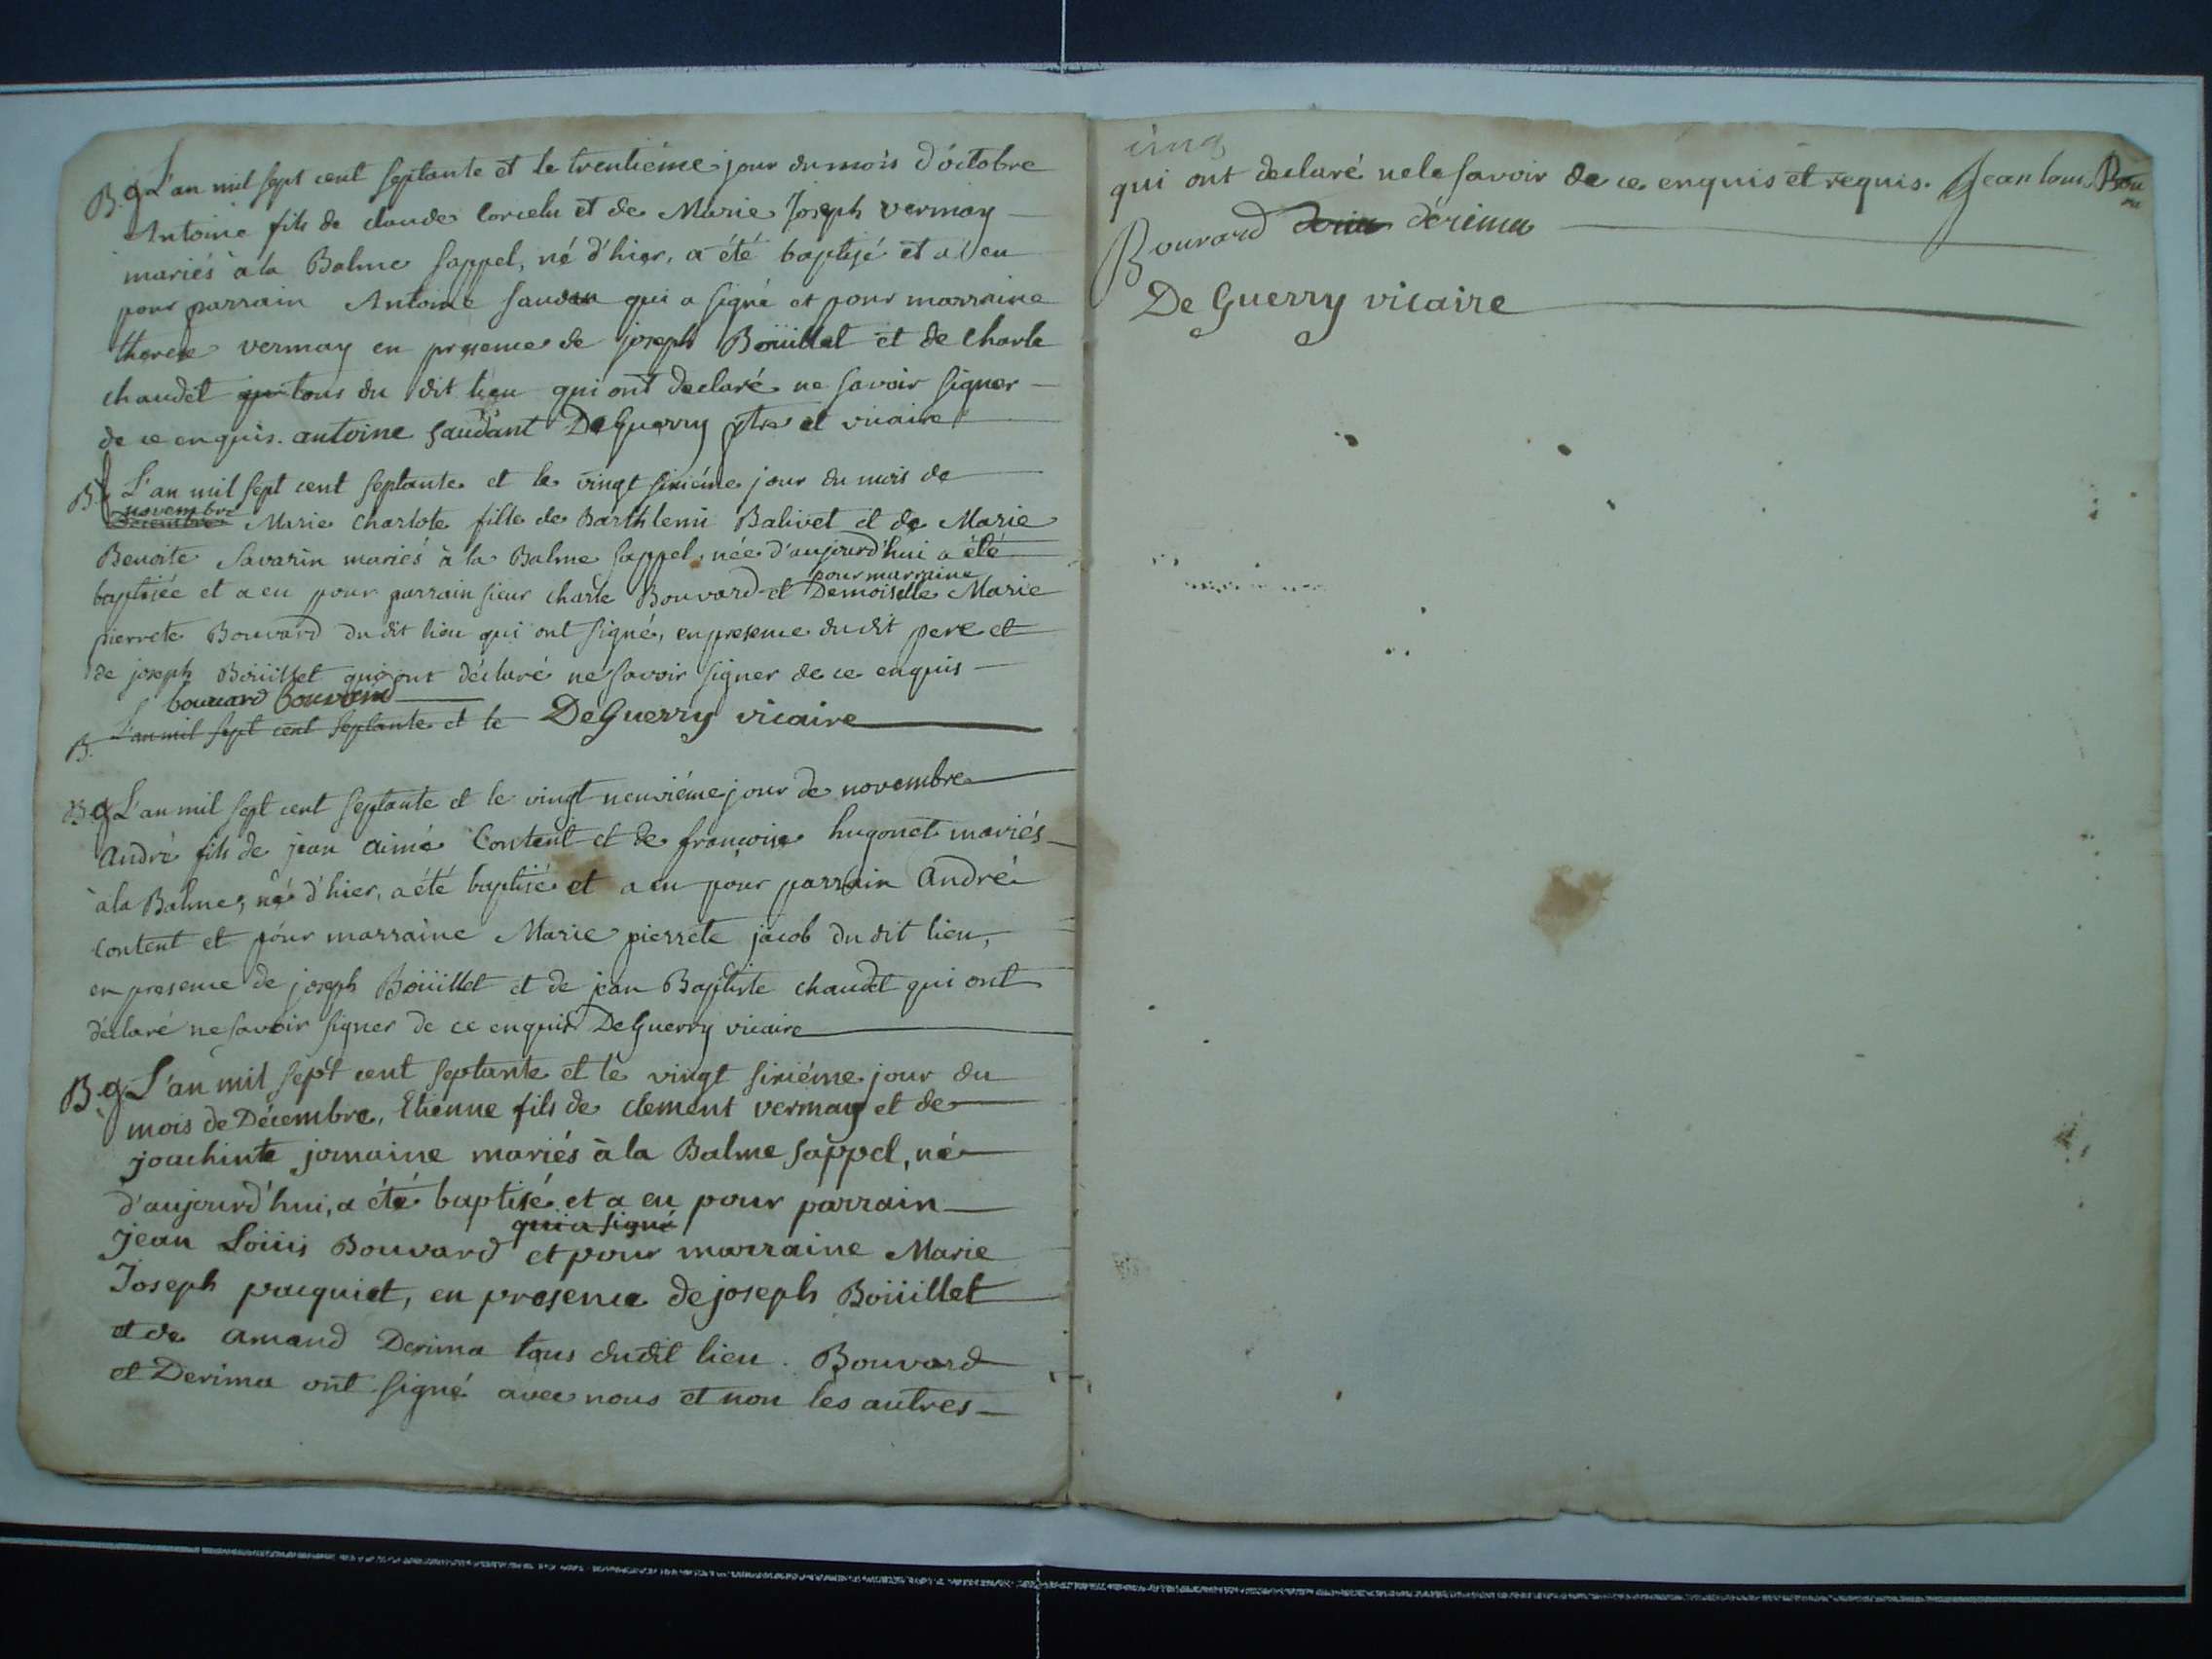 B. g L'an mil sept cent septante et le trentiéme jour du mois d'octobre
Antoine fils de claude Corcelu et de Marie Joseph vermay
mariés à la Balme sappel, né d'hier, a été baptisé et a eu
pour parrain Antoine saudan qui a signé et pour marraine
therese vermay en presence de joseph Boüillet et de charle
chaudet qui tous du dit lieu qui ont declaré ne savoir signer
de ce enquis. antoine saudant DeGuerry ptre et vicaire
B. f L'an mil sept cent septante et le vingt sixiéme jour du mois de
novembre
Decembre Marie charlote fille de Barthlemi Balivet et de Marie
Benoite Savarin mariés à la Balme sappel, née d'aujourd'hui a été
pour marraine
baptisée et a eu pour parrain sieur charle Bouvard et Demoiselle Marie
pierrete Bouvard du dit lieu qui ont signé, en presence du dit pere et
de joseph Boüillet qui ont déclaré ne savoir signer de ce enquis
bouvard bouvard
B. L'an mil sept cent septante et le DeGuerry vicaire
B g L'an mil sept cent septante et le vingt neuviéme jour de novembre
André fils de jean aimé Content et de françoise hugonet mariés
à la Balme, né d'hier, a été baptisé et a eu pour parrain André
Content et pour marraine Marie pierrete jacob du dit lieu,
en presence de joseph Boüillet et de jean Baptiste chaudet qui ont
déclaré ne savoir signer de ce enquis DeGuerry vicaire
B. g L'an mil sept cent septante et le vingt sixiéme jour du
mois de Décembre, Etienne fils de clement vermay et de
joachinte jomaine mariés à la Balme sappel, né
d'aujourd'hui, a été baptisé et a eu pour parrain
qui a signé
jean Loüis Bouvard et pour marraine Marie
Joseph pacquiet, en presence de joseph Boüillet
et de amand Derima tous du dit lieu. Bouvard
et Derima ont signé avec nous et non les autres
cinq
qui ont declaré ne le savoir de ce enquis et requis. Jean louis Bou
Bouvard derima
De Guerry vicaire